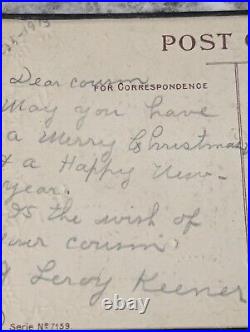 POST C
Dear cousin
FOR CORRESPONDENCE
May you have
a Merry Christmas
& a Happy New
year.
Is the wish of
your cousin
Leroy Keener
Serie No 7159